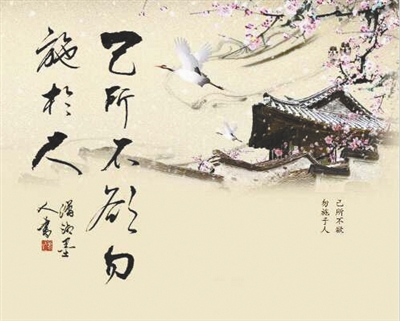 己所不欲勿
施於人
人書
己所不欲
勿施于人